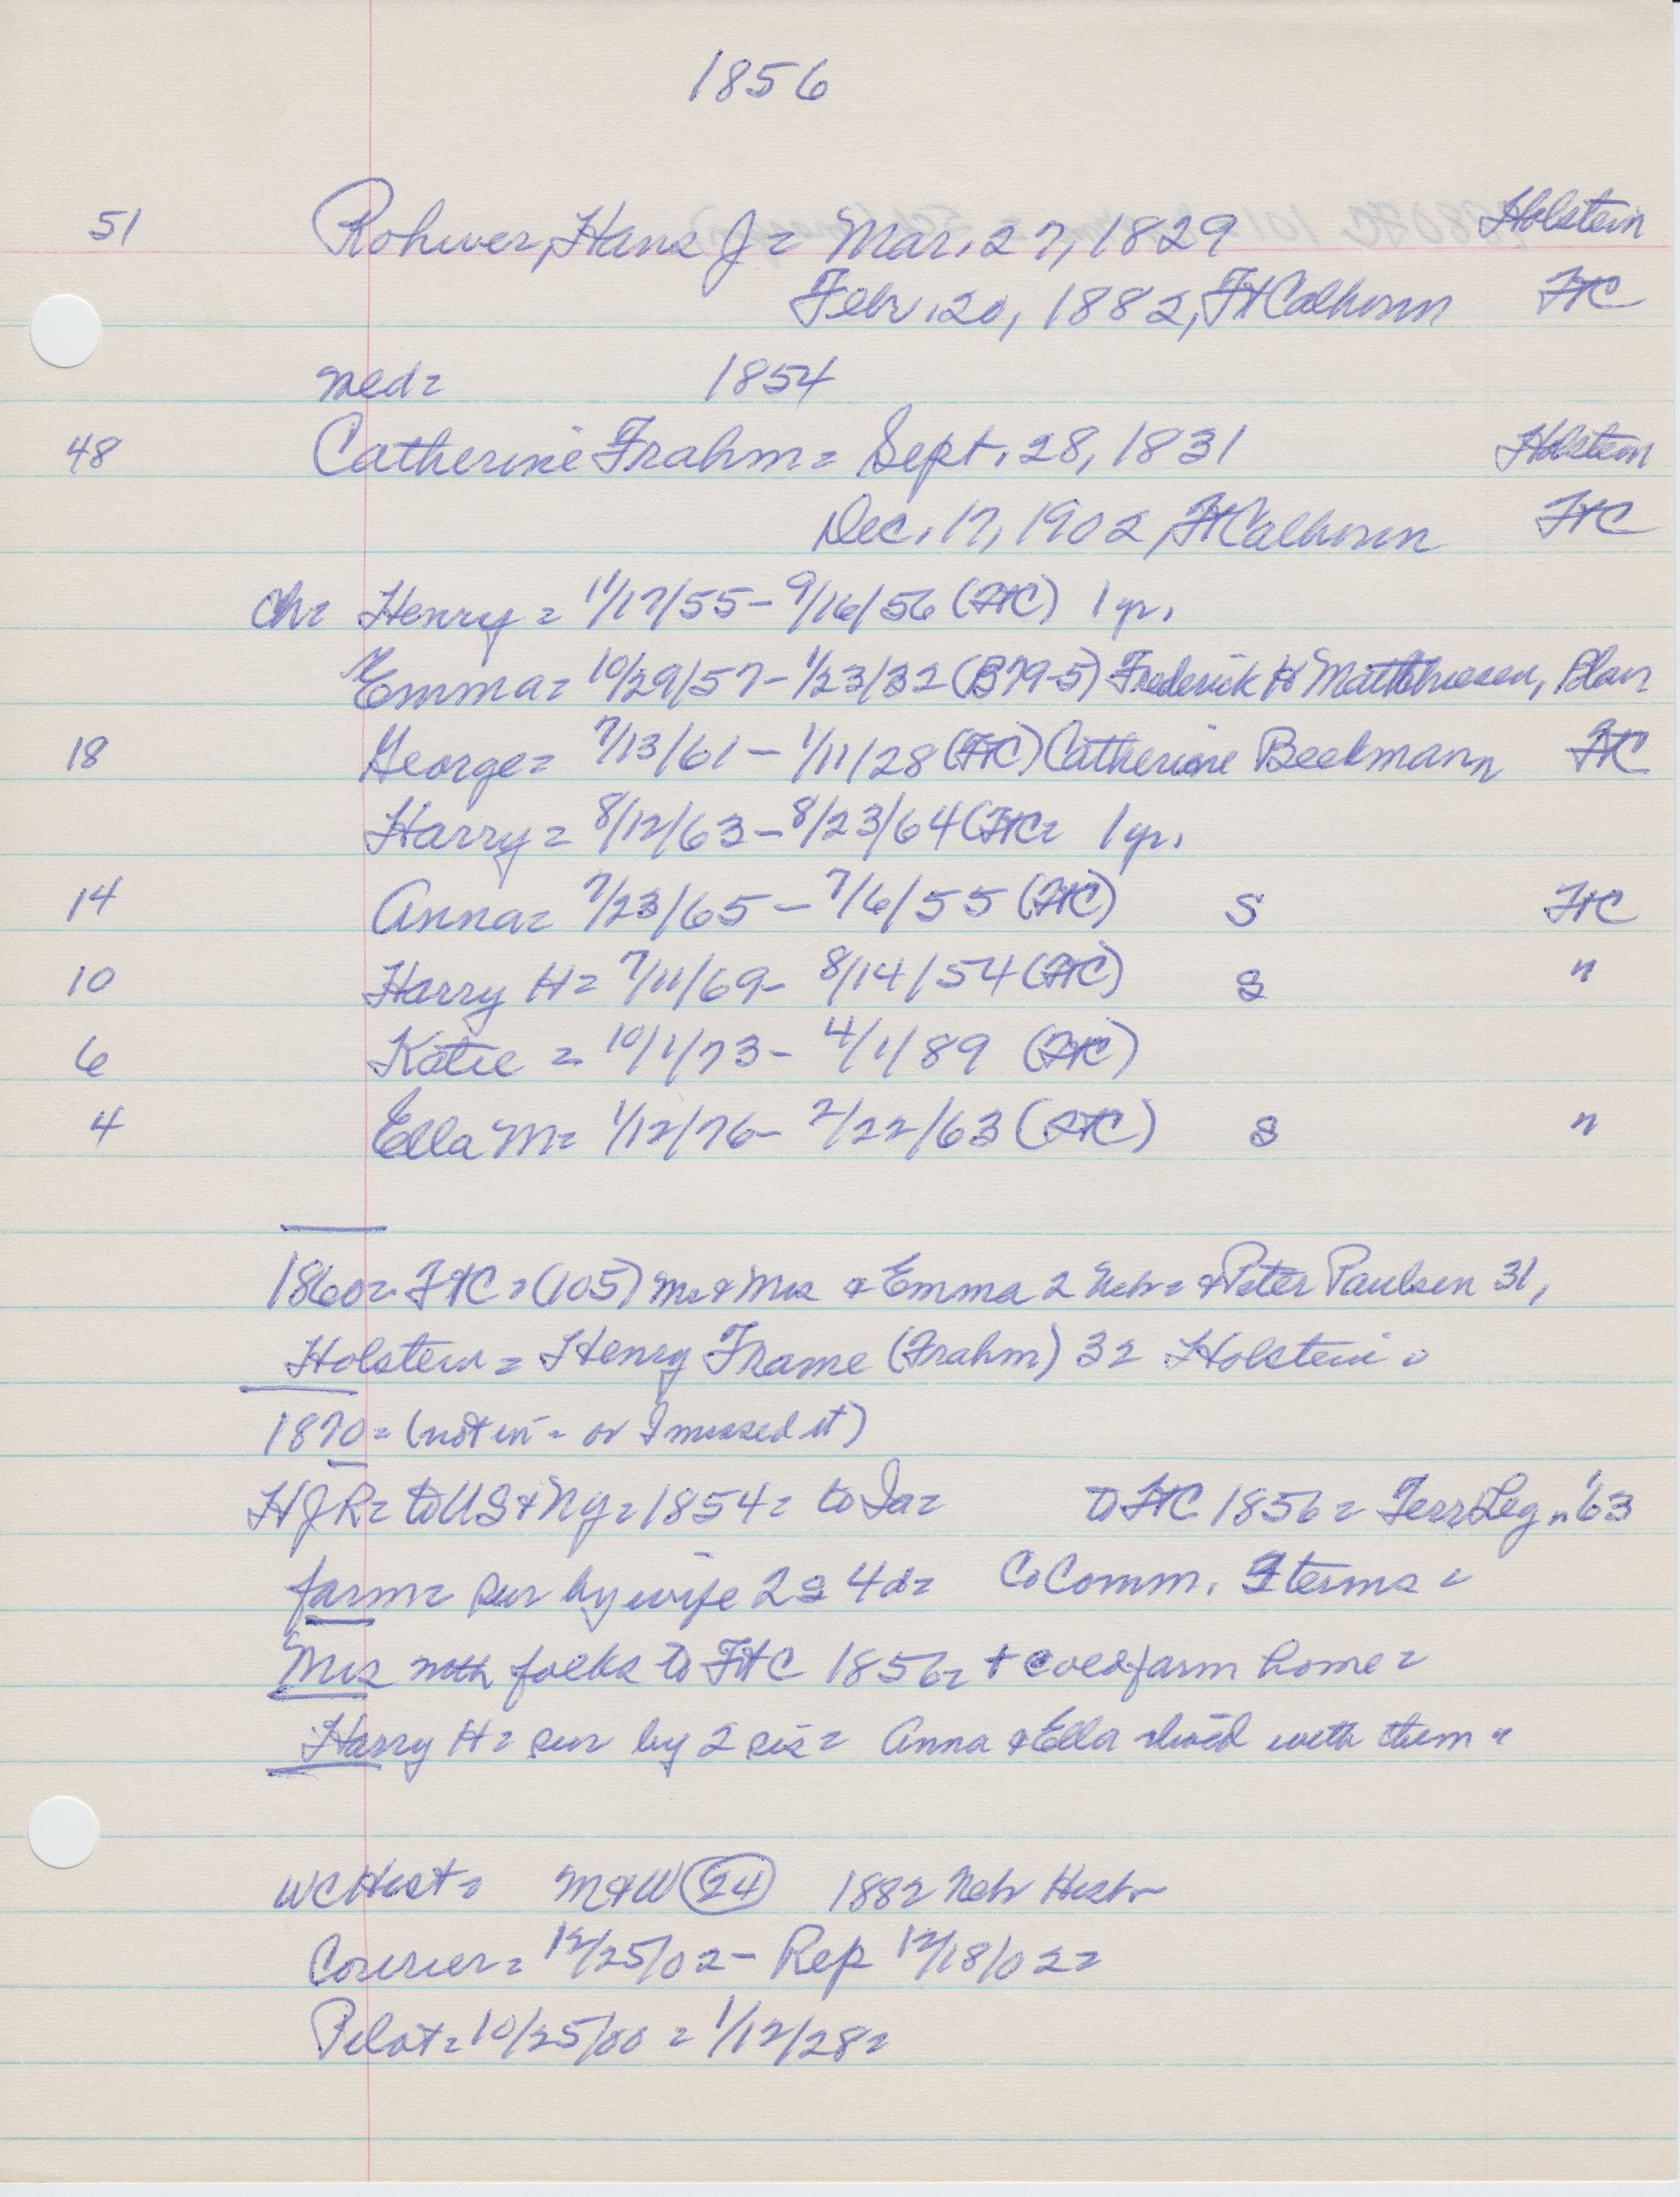 1856
51 Rohwer, Hans J = Mar. 27, 1829 Holstein
Feb. 20, 1882, Ft Calhoun FtC
med = 1854
48 Catherine Frahm = Sept. 28, 1831 Holstein
Dec. 17, 1902, Ft Calhoun FtC
ch = Henry = 11/17/55 - 9/16/56 (FtC) 1 yr.
Emma = 10/29/57 - 1/23/32 (B79-5) Frederick H Matthiesen, Blair
18 George = 7/13/61 - 1/11/28 (FtC) Catherine Beekmann FtC
Harry = 8/12/63 - 8/23/64 (FtC = 1 yr.
14 Anna = 7/23/65 - 7/6/55 (FtC) S FtC
10 Harry H = 7/11/69 - 8/14/54 (FtC) S "
6 Katie = 10/1/73 - 4/1/89 (FtC)
4 Ella M = 1/12/76 - 2/22/63 (FtC) S "
1860 = FtC = (105) Mr & Mrs & Emma 2 Neb = & Peter Paulsen 31,
Holstein = Henry Frame (Frahm) 32 Holstein =
1870 = (not in - or I missed it)
HJR = to US & Ny = 1854 = to Ia = to FtC 1856 = Terr Leg = '63
farm = sur by wife 2s 4d = CoComm. terms =
Mrs folks to FtC 1856 = + farm home =
Harry H = sur by 2 sis = Anna & Ella lived with them "
WCHist = M&W (24) 1882 Neb Hist
Courier = 12/25/02 - Rep 12/18/02 =
Pilot = 10/25/00 = 1/12/28 =